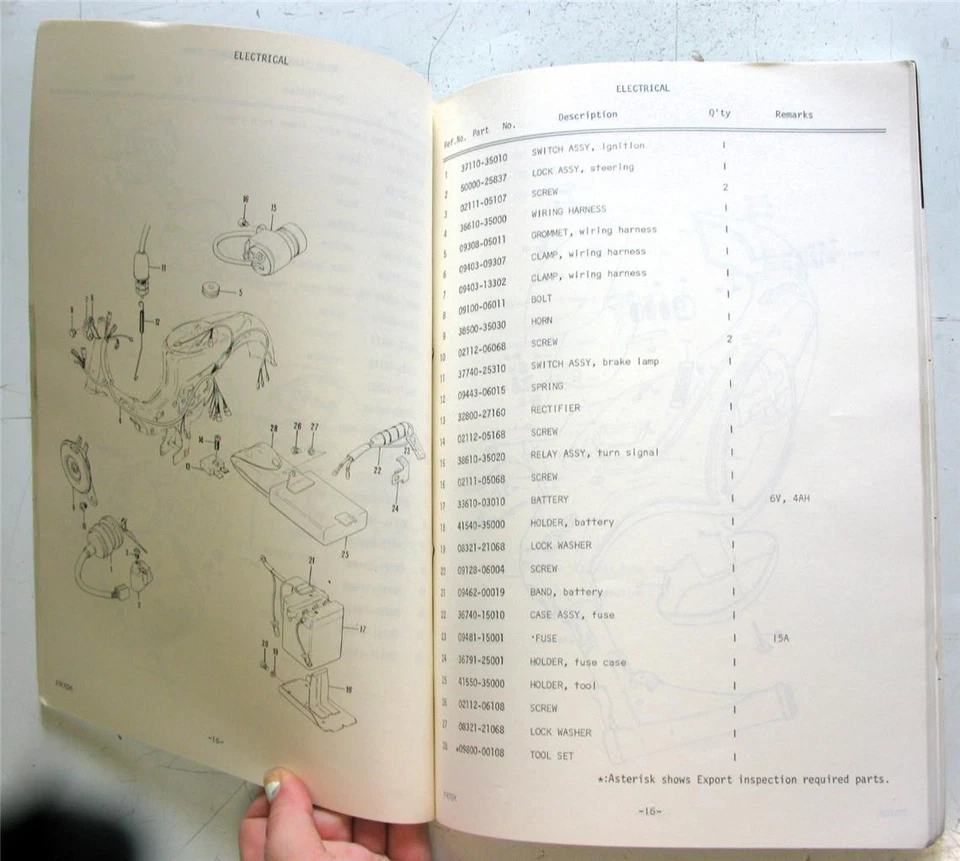 ELECTRICAL
16
15
11
5
12
4
28
26
27
14
13
22
23
24
25
21
17
20
19
18
-16-
ELECTRICAL
Ref.No. Part No. Description Q'ty Remarks
1 37110-35010 SWITCH ASSY, ignition 1
2 50000-25837 LOCK ASSY, steering 1
3 02111-05107 SCREW 2
4 36610-35000 WIRING HARNESS 1
5 09308-05011 GROMMET, wiring harness 1
6 09403-09307 CLAMP, wiring harness 1
7 09403-13302 CLAMP, wiring harness 1
8 09100-06011 BOLT 1
9 38500-35030 HORN 1
10 02112-06068 SCREW 2
11 37740-25310 SWITCH ASSY, brake lamp 1
12 09443-06015 SPRING 1
13 32800-27160 RECTIFIER 1
14 02112-05168 SCREW 1
15 38610-35020 RELAY ASSY, turn signal 1
16 02111-05068 SCREW 1
17 33610-03010 BATTERY 1 6V, 4AH
18 41540-35000 HOLDER, battery 1
19 08321-21068 LOCK WASHER 1
20 09128-06004 SCREW 1
21 09462-00019 BAND, battery 1
22 36740-15010 CASE ASSY, fuse 1
23 09481-15001 ·FUSE 1 15A
24 36791-25001 HOLDER, fuse case 1
25 41550-35000 HOLDER, tool 1
26 02112-06108 SCREW 1
27 08321-21068 LOCK WASHER 1
28 *09800-00108 TOOL SET 1
*:Asterisk shows Export inspection required parts.
-16-